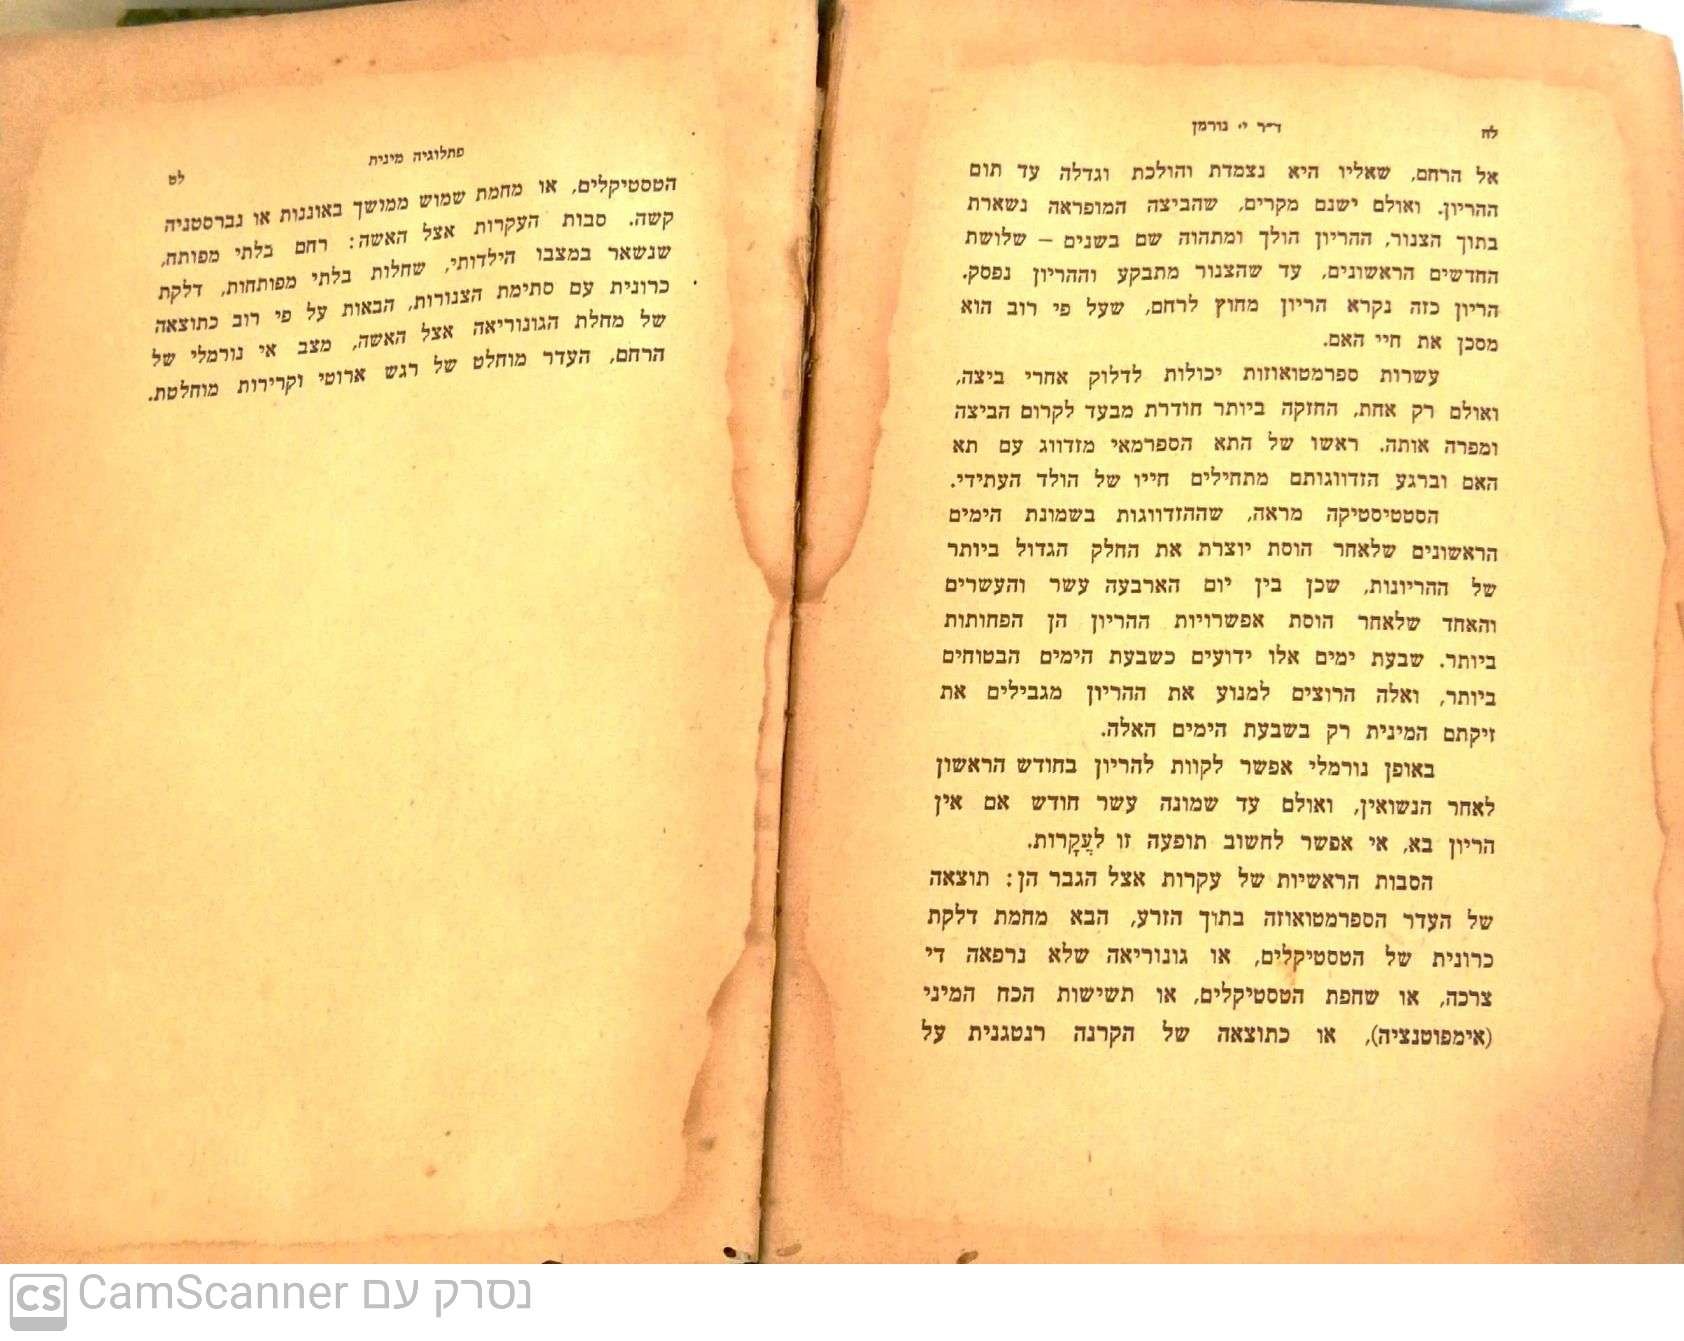 לח
ד״ר י. נורמן
אל הרחם, שאליו היא נצמדת והולכת וגדלה עד תום
ההריון. ואולם ישנם מקרים, שהביצה המופראה נשארת
בתוך הצנור, ההריון הולך ומתהוה שם בשנים – שלושת
החדשים הראשונים, עד שהצנור מתבקע וההריון נפסק.
הריון כזה נקרא הריון מחוץ לרחם, שעל פי רוב הוא
מסכן את חיי האם.
עשרות ספרמטואוזות יכולות לדלוק אחרי ביצה,
ואולם רק אחת, החזקה ביותר חודרת מבעד לקרום הביצה
ומפרה אותה. ראשו של התא הספרמאי מזדווג עם תא
האם וברגע הזדווגותם מתחילים חייו של הולד העתידי.
הסטטיסטיקה מראה, שההזדווגות בשמונת הימים
הראשונים שלאחר הוסת יוצרת את החלק הגדול ביותר
של ההריונות, שכן בין יום הארבעה עשר והעשרים
והאחד שלאחר הוסת אפשרויות ההריון הן הפחותות
ביותר. שבעת ימים אלו ידועים כשבעת הימים הבטוחים
ביותר, ואלה הרוצים למנוע את ההריון מגבילים את
זיקתם המינית רק בשבעת הימים האלה.
באופן נורמלי אפשר לקוות להריון בחודש הראשון
לאחר הנשואין, ואולם עד שמונה עשר חודש אם אין
הריון בא, אי אפשר לחשוב תופעה זו לעֲקָרות.
הסבות הראשיות של עקרות אצל הגבר הן: תוצאה
של העדר הספרמטואוזה בתוך הזרע, הבא מחמת דלקת
כרונית של הטסטיקלים, או גונוריאה שלא נרפאה די
צרכה, או שחפת הטסטיקלים, או תשישות הכח המיני
(אימפוטנציה), או כתוצאה של הקרנה רנטגנית על
פתלוגיה מינית
לט
הטסטיקלים, או מחמת שמוש ממושך באוננות או נברסטניה
קשה. סבות העקרות אצל האשה: רחם בלתי מפותח,
שנשאר במצבו הילדותי, שחלות בלתי מפותחות, דלקת
כרונית עם סתימת הצנורות, הבאות על פי רוב כתוצאה
של מחלת הגונוריאה אצל האשה, מצב אי נורמלי של
הרחם, העדר מוחלט של רגש ארוטי וקרירות מוחלטת.
CS נסרק עם CamScanner